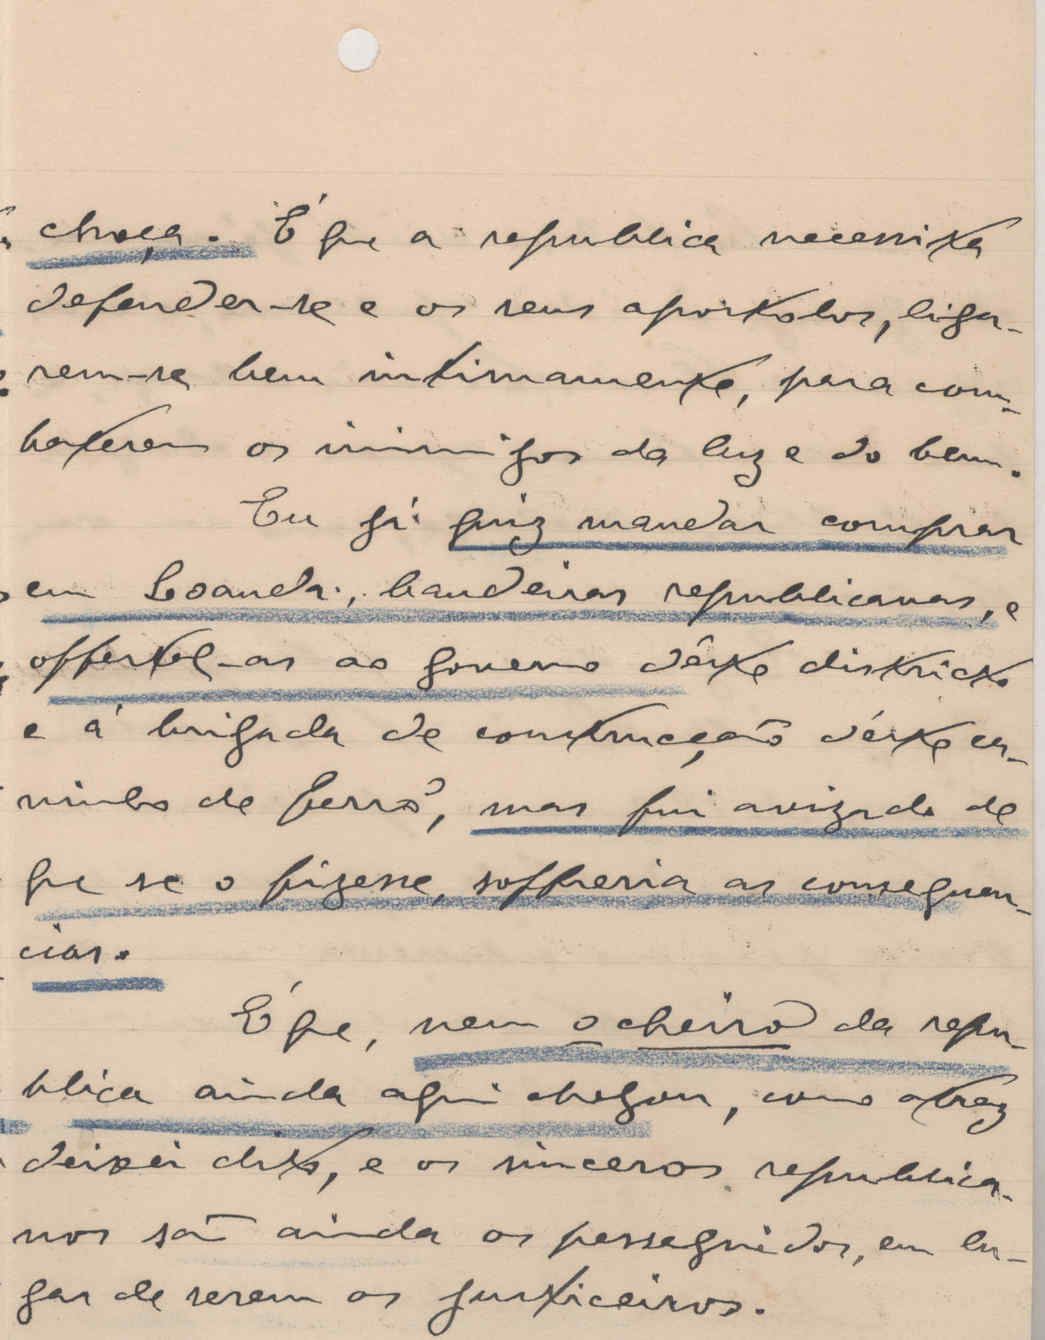 choça. É que a republica necessita
defender-se e os seus apostolos, liga-
rem-se bem intimamente, para com-
baterem os inimigos da luz e do bem.
Eu já quiz mandar comprar
em Loanda, bandeiras republicanas, e
offertal-as ao governo dêste districto
e á brigada de construcção déste ca-
minho de ferro, mas fui avizado de
que se o fizesse, soffreria as consequen-
cias.
É que, nem o cheiro da repu-
blica ainda aqui chegou, como atraz
deixei dito, e os sinceros republica-
nos são ainda os perseguidos, em lu-
gar de serem os justiceiros.